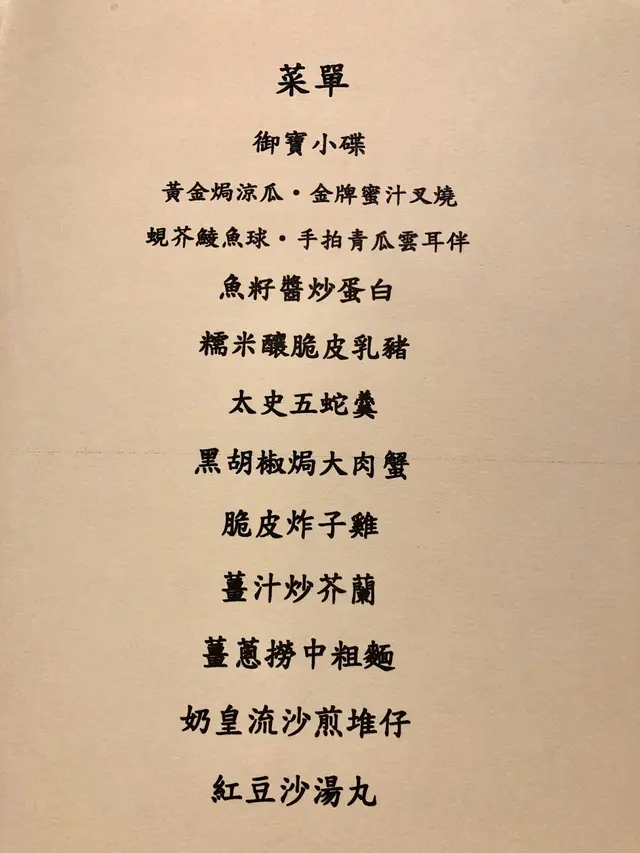 菜單
御寶小碟
黃金焗涼瓜・金牌蜜汁叉燒
蜆芥鯪魚球・手拍青瓜雲耳伴
魚籽醬炒蛋白
糯米釀脆皮乳豬
太史五蛇羹
黑胡椒焗大肉蟹
脆皮炸子雞
薑汁炒芥蘭
薑蔥撈中粗麵
奶皇流沙煎堆仔
紅豆沙湯丸